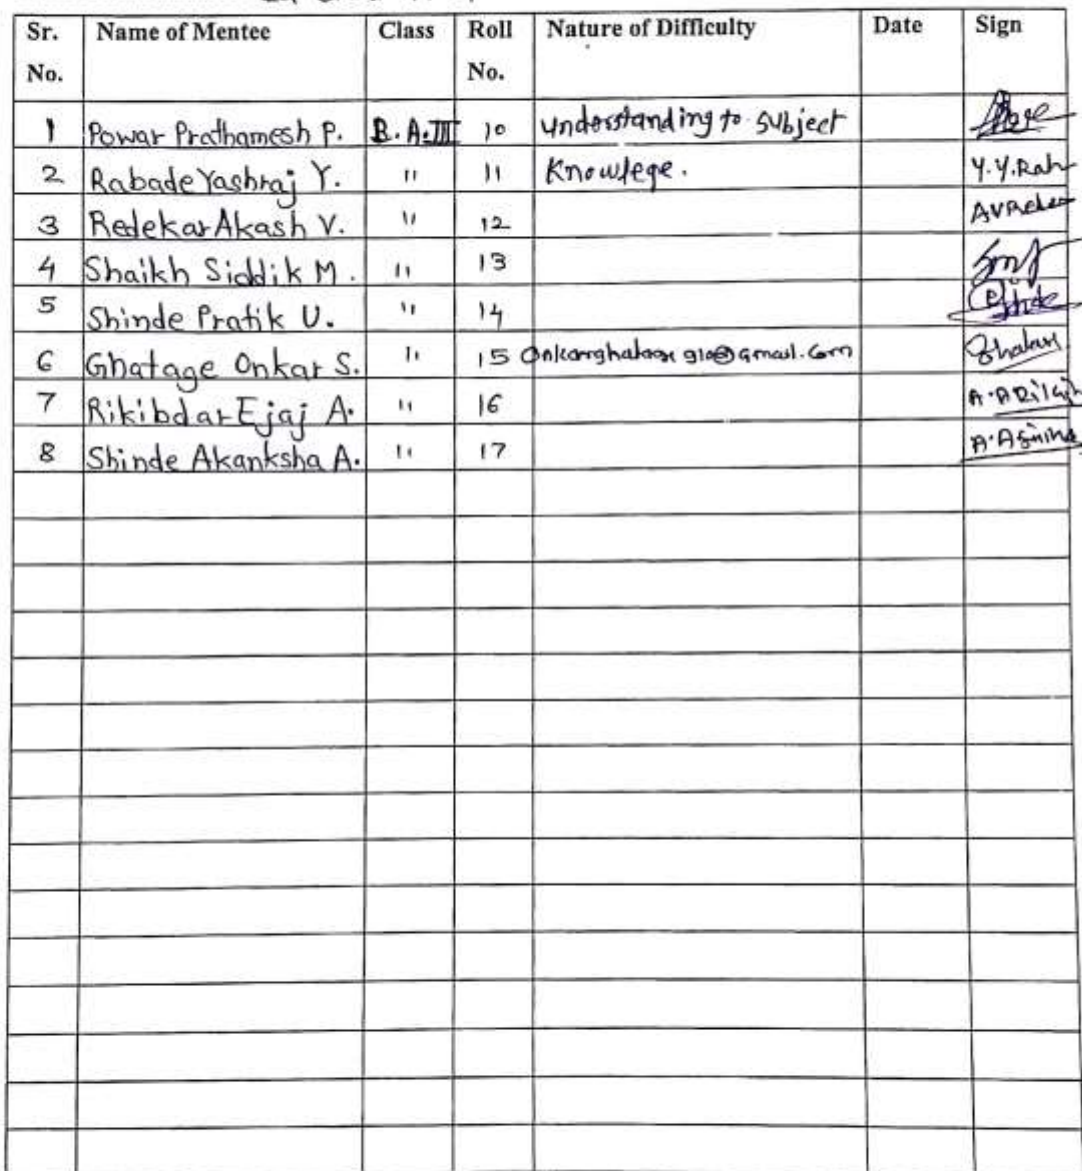 Sr. No. Name of Mentee Class Roll No. Nature of Difficulty Date Sign
1 Powar Prathamesh P. B.A.III 10 Understanding to Subject
2 Rabade Yashraj Y. " 11 Knowlege. Y.Y.Rab
3 Redekar Akash V. " 12
4 Shaikh Siddik M. " 13
5 Shinde Pratik U. " 14
6 Ghatage Onkar S. " 15
7 Rikibdar Ejaj A. " 16
8 Shinde Akanksha A. " 17